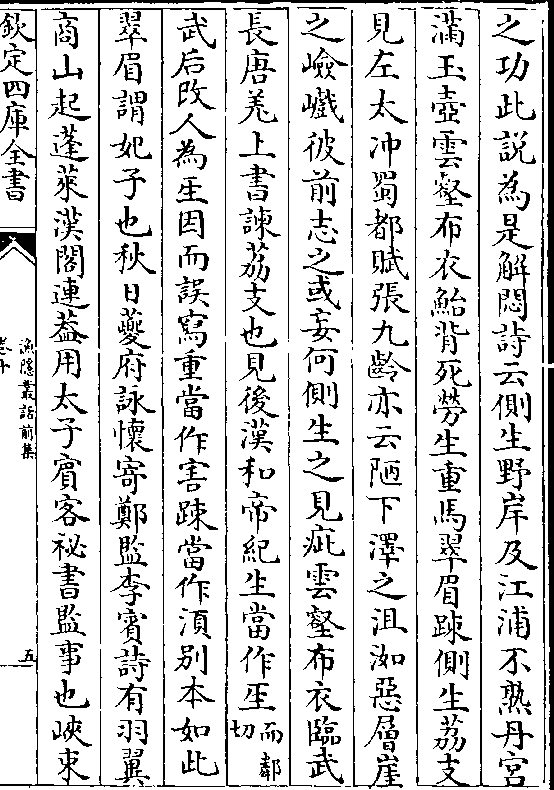 之功此説為是解悶詩云側生野岸及江浦不熟丹宮
滿玉壺雲壑布衣鮐背死勞生重馬翠眉踈側生荔支
見左太冲蜀都賦張九齡亦云陋下澤之沮洳惡層崖
之嶮巇彼前志之或妄何側生之見疵雲壑布衣臨武
長唐羌上書諫荔支也見後漢和帝紀生當作𤯔而鄰切
武后改人為𤯔因而誤寫重當作害踈當作須别本如此
翠眉謂妃子也秋日夔府詠懷寄鄭監李賓詩有羽翼
商山起蓬萊漢閣連葢用太子賓客祕書監事也峽束
欽定四庫全書
漁隱叢話前集
卷十
五